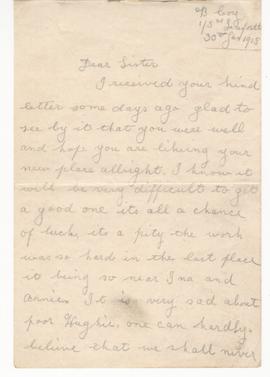 B Coy
1/5th
30th Jan 1918
Dear Sister
I received your kind
letter some days ago glad to
see by it that you were well
and hope you are likeing your
new place allright. I know it
will be very difficult to get
a good one its all a chance
of luck, its a pity the work
was so hard in the last place
it being so near Ina and
Annie. It is very sad about
poor Hughie, one can hardly
believe that we shall never